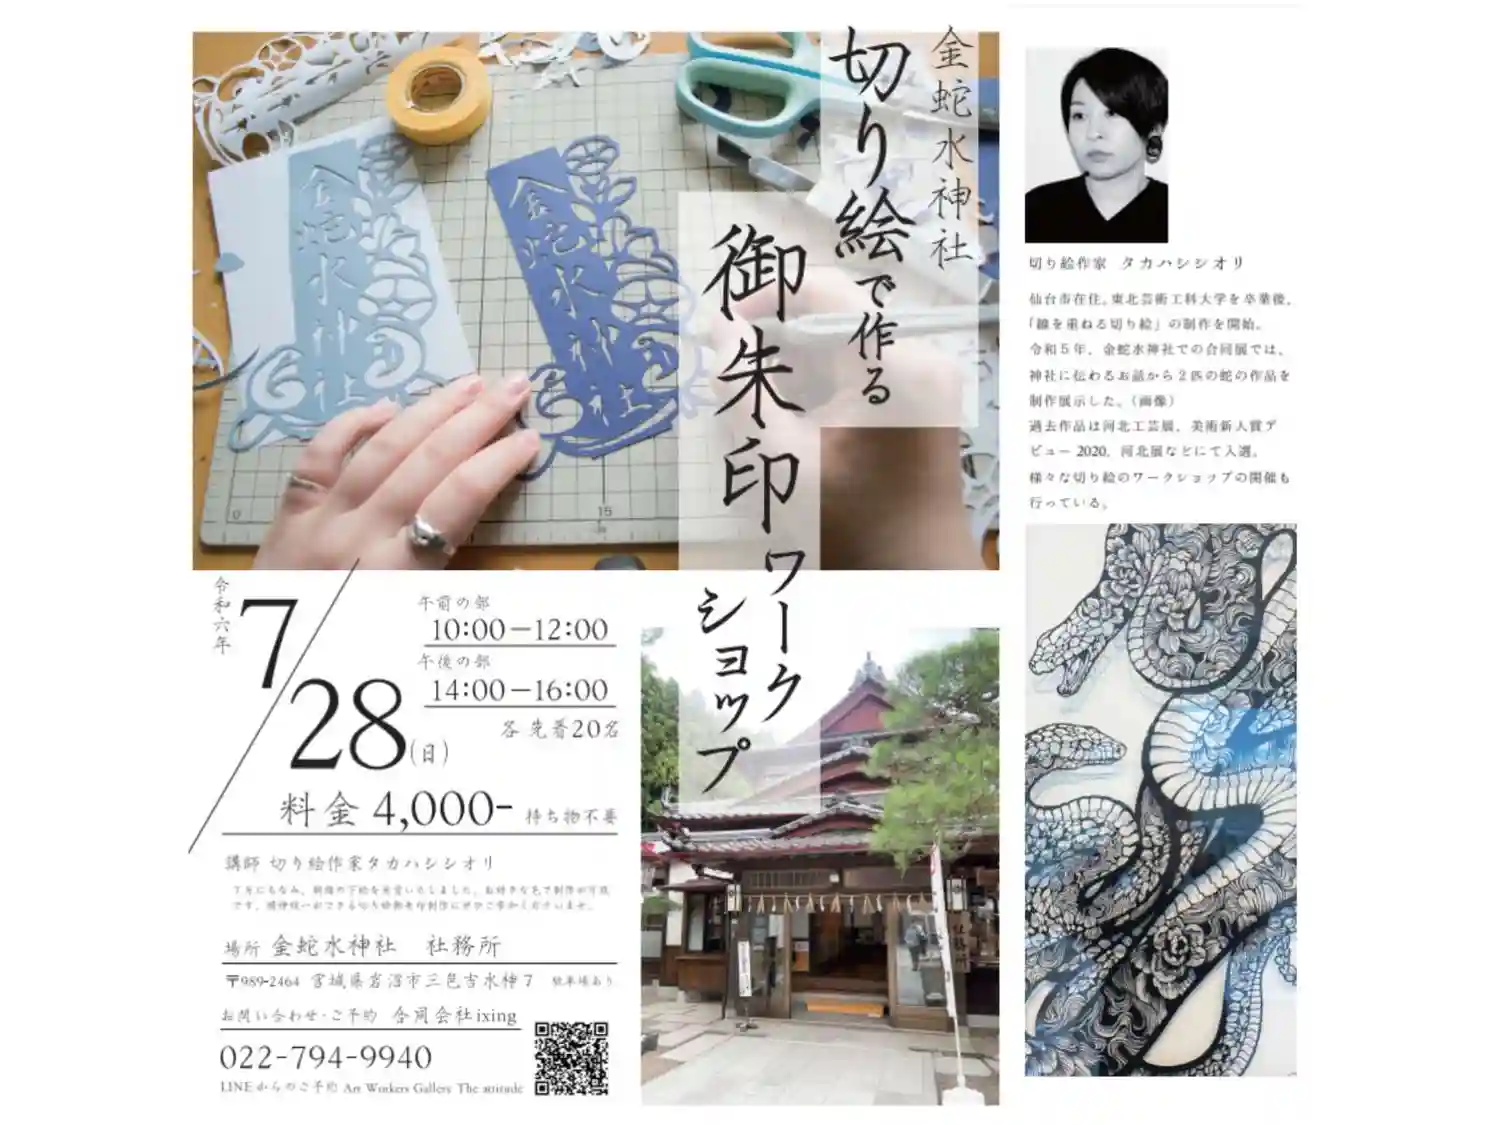 金蛇水神社
切り絵で作る
御朱印ワーク
ショップ
金蛇水神社
金蛇水神社
0
15
令和六年
7/28(日)
午前の部
10:00−12:00
午後の部
14:00−16:00
各 先着20名
料金 4,000- 持ち物不要
講師 切り絵作家タカハシシオリ
場所 金蛇水神社 社務所
〒989-2464 宮城県岩沼市三色吉水神7 駐車場あり
お問い合わせ・ご予約 合同会社ixing
022-794-9940
LINEからのご予約 Art Workers Gallery The attitude
切り絵作家 タカハシシオリ
仙台市在住。東北芸術工科大学を卒業後、
「線を重ねる切り絵」の制作を開始。
令和5年、金蛇水神社での合同展では、
神社に伝わるお話から2匹の蛇の作品を
制作展示した。(画像)
過去作品は河北工芸展、美術新人賞デ
ビュー2020、河北展などにて入選。
様々な切り絵のワークショップの開催も
行っている。